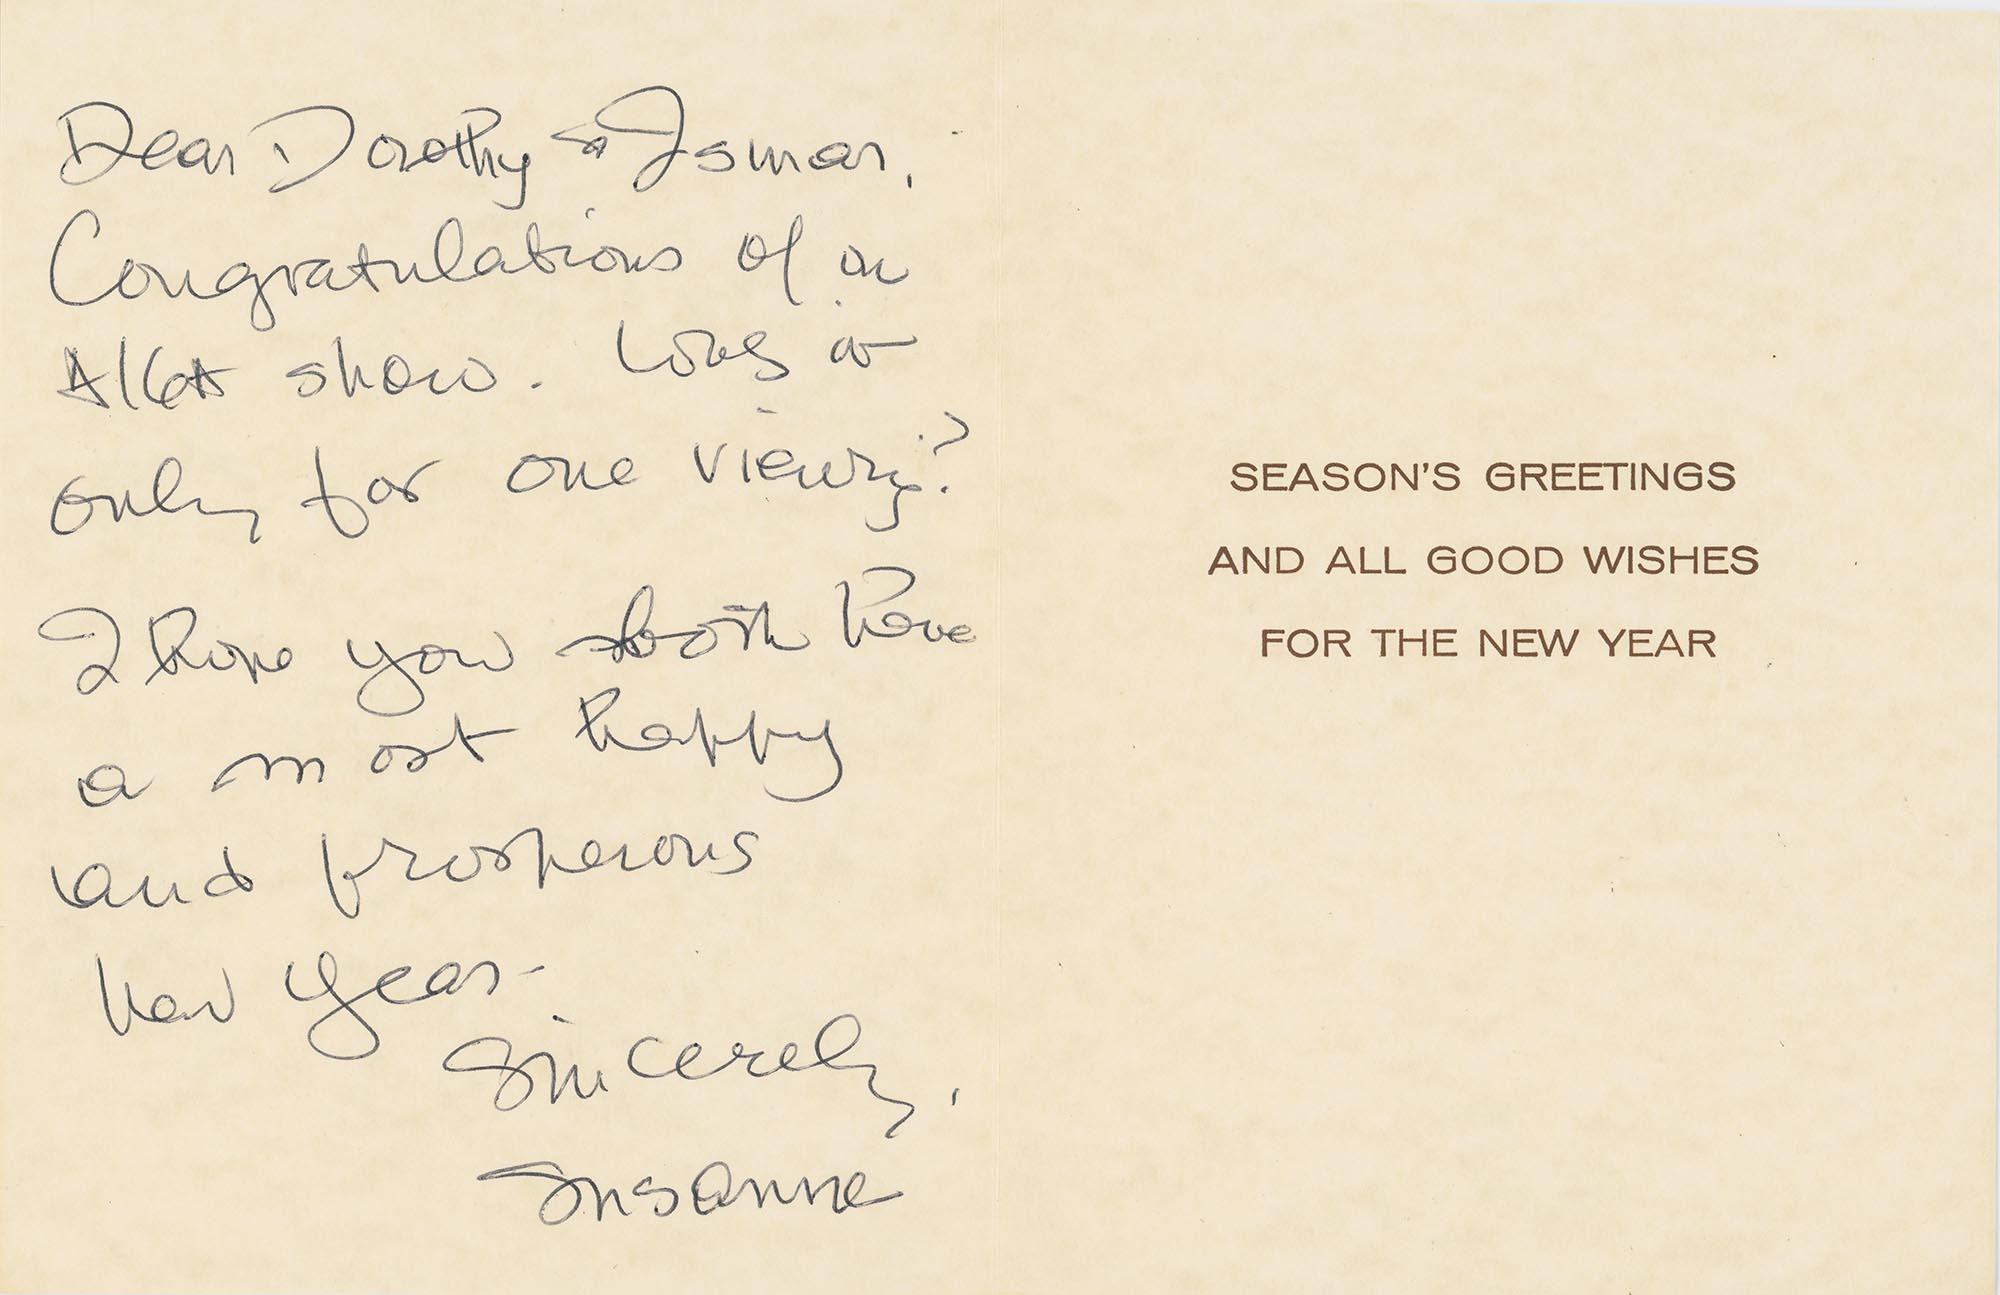 Dear Dorothy & Ismar,
Congratulations of an
AIGA show. Was it
only for one viewing?
I hope you both have
a most happy
and prosperous
new year-
Sincerely,
Susanne
SEASON'S GREETINGS
AND ALL GOOD WISHES
FOR THE NEW YEAR